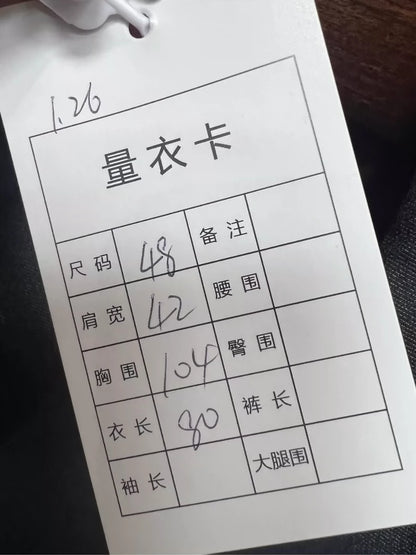 1.26
量衣卡
尺码 48 备注
肩宽 42 腰围
胸围 104 臀围
衣长 80 裤长
袖长 大腿围